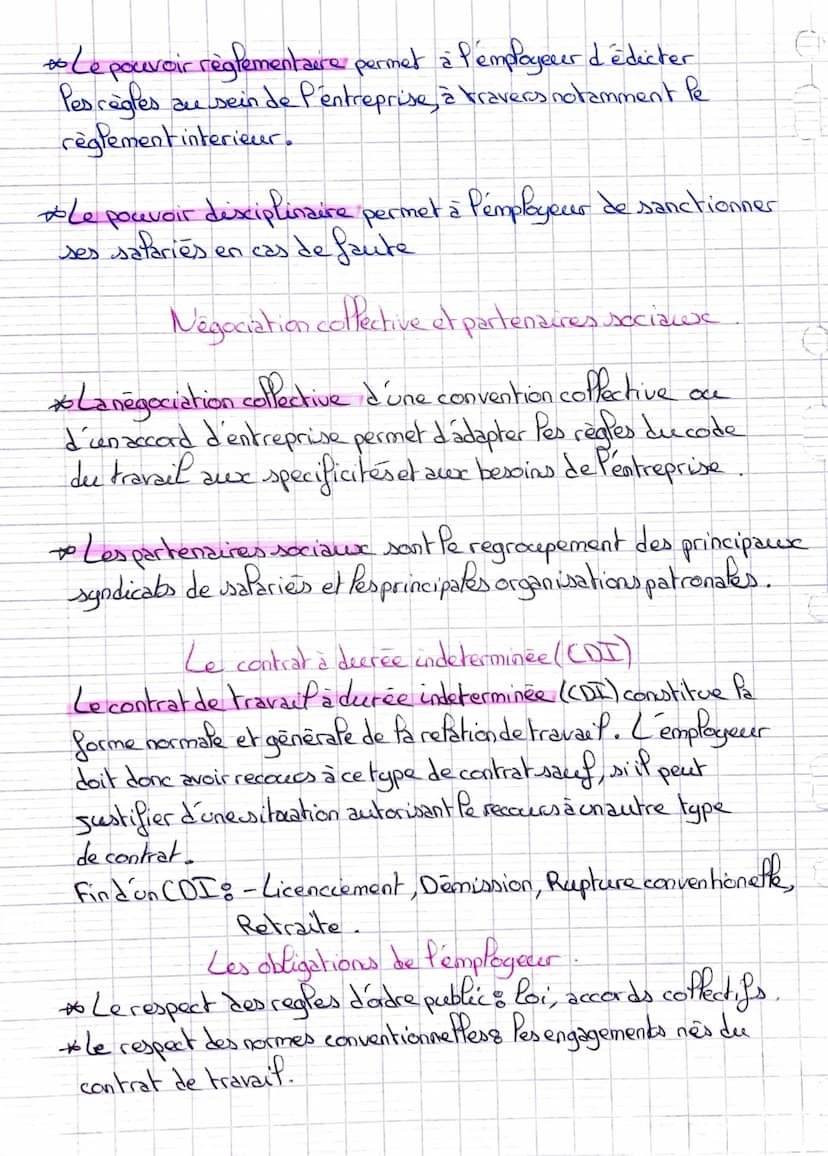 * Le pouvoir règlementaire permet à l'employeur d'édicter
les règles au sein de l'entreprise, à travers notamment le
règlement interieur.
* Le pouvoir disciplinaire permet à l'employeur de sanctionner
ses salariés en cas de faute
Négociation collective et partenaires sociaux.
* La négociation collective d'une convention collective ou
d'un accord d'entreprise permet d'adapter les règles du code
du travail aux specificités et aux besoins de l'entreprise.
* Les partenaires sociaux sont le regroupement des principaux
syndicats de salariés et les principales organisations patronales.
Le contrat à durée indeterminée (CDI)
Le contrat de travail à durée indeterminée (CDI) constitue la
forme normale et générale de la relation de travail. L'employeur
doit donc avoir recours à ce type de contrat sauf, si il peut
justifier d'une situation autorisant le recours à un autre type
de contrat.
Fin d'un CDI : - Licenciement, Démission, Rupture conventionelle,
Retraite.
Les obligations de l'employeur.
* Le respect des regles d'odre public : loi, accords collectifs.
* le respect des normes conventionnelles : les engagements nés du
contrat de travail.